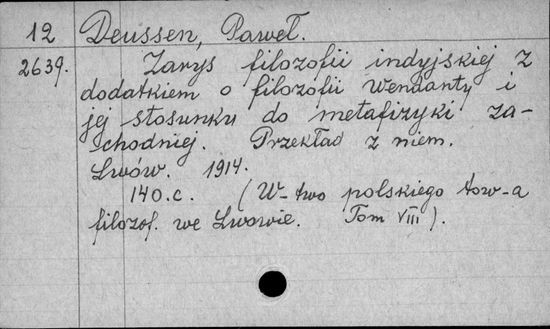 12 Deussen, Paweł.
2639. Zarys filozofii indyjskiej z
dodatkiem o filozofii Wendanty i
jej stosunku do metafizyki za-
chodniej. Przekład z niem.
Lwów. 1914.
140.c. (W-two polskiego tow-a
filozof. we Lwowie. Tom VIII).